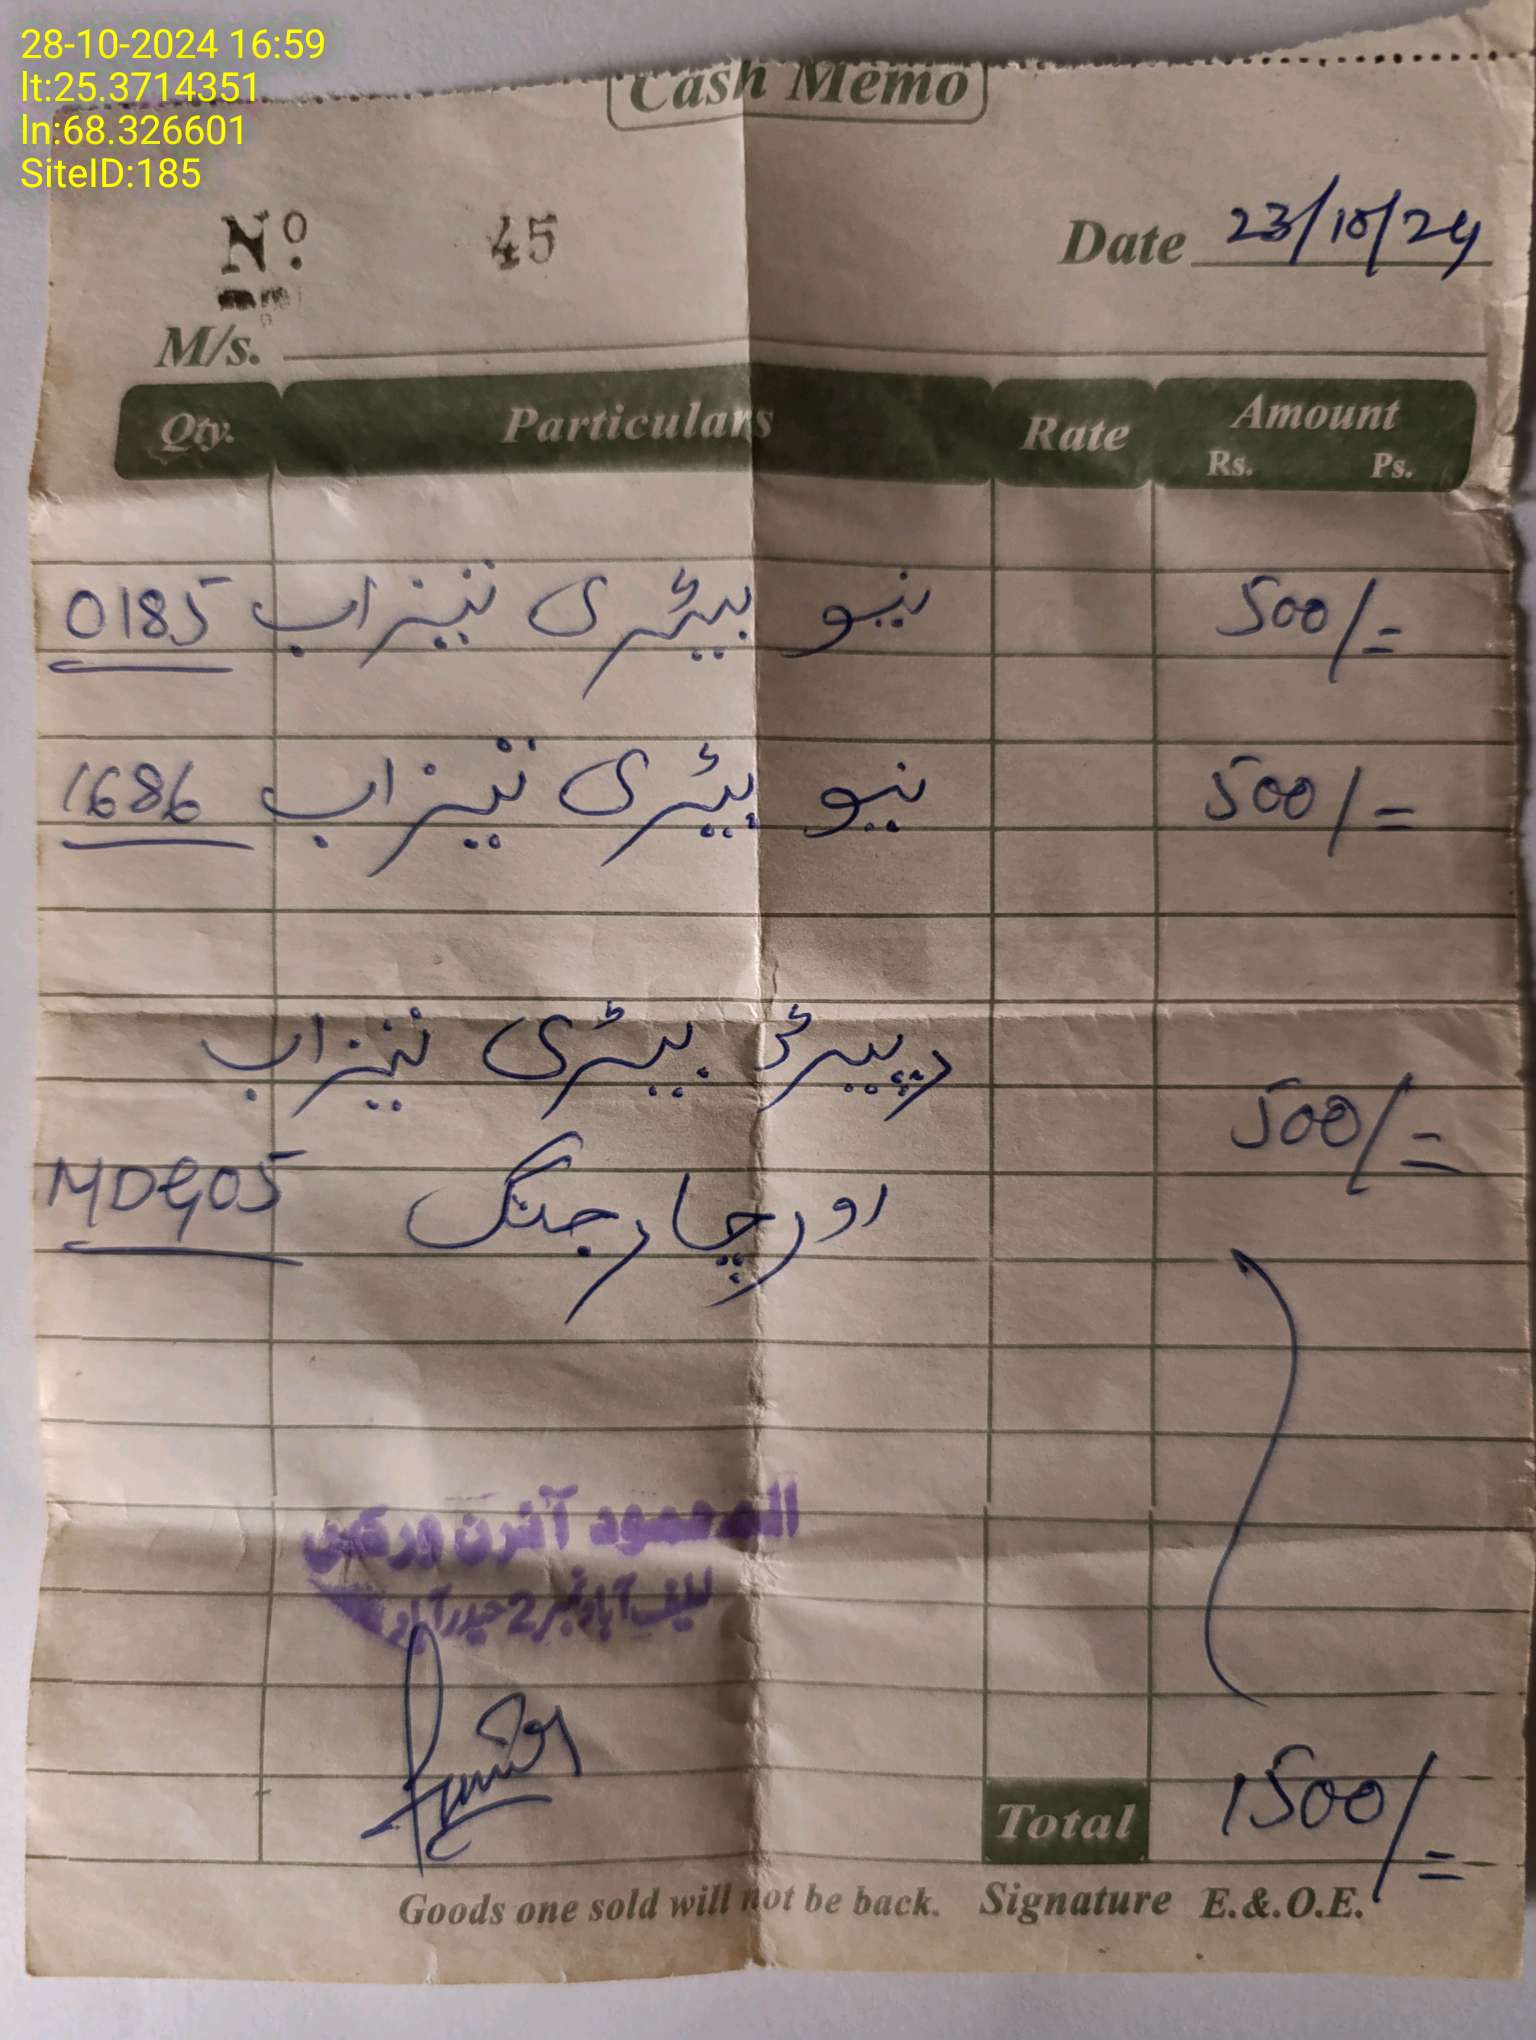 28-10-2024 16:59
lt:25.3714351
ln:68.326601
SiteID:185
Cash Memo
Nº 45
Date 23/10/24
M/s.
Qty. Particulars Rate Amount
Rs. Ps.
0185 نیو بیٹری تیزاب 500/=
1686 نیو بیٹری تیزاب 500/=
رپیئر بیٹری تیزاب
500/=
MDG05 اور چارجنگ
المحمود آئرن ورکس
لطیف آباد نمبر 2 حیدرآباد
Total 1500/=
Goods one sold will not be back. Signature E.&.O.E.